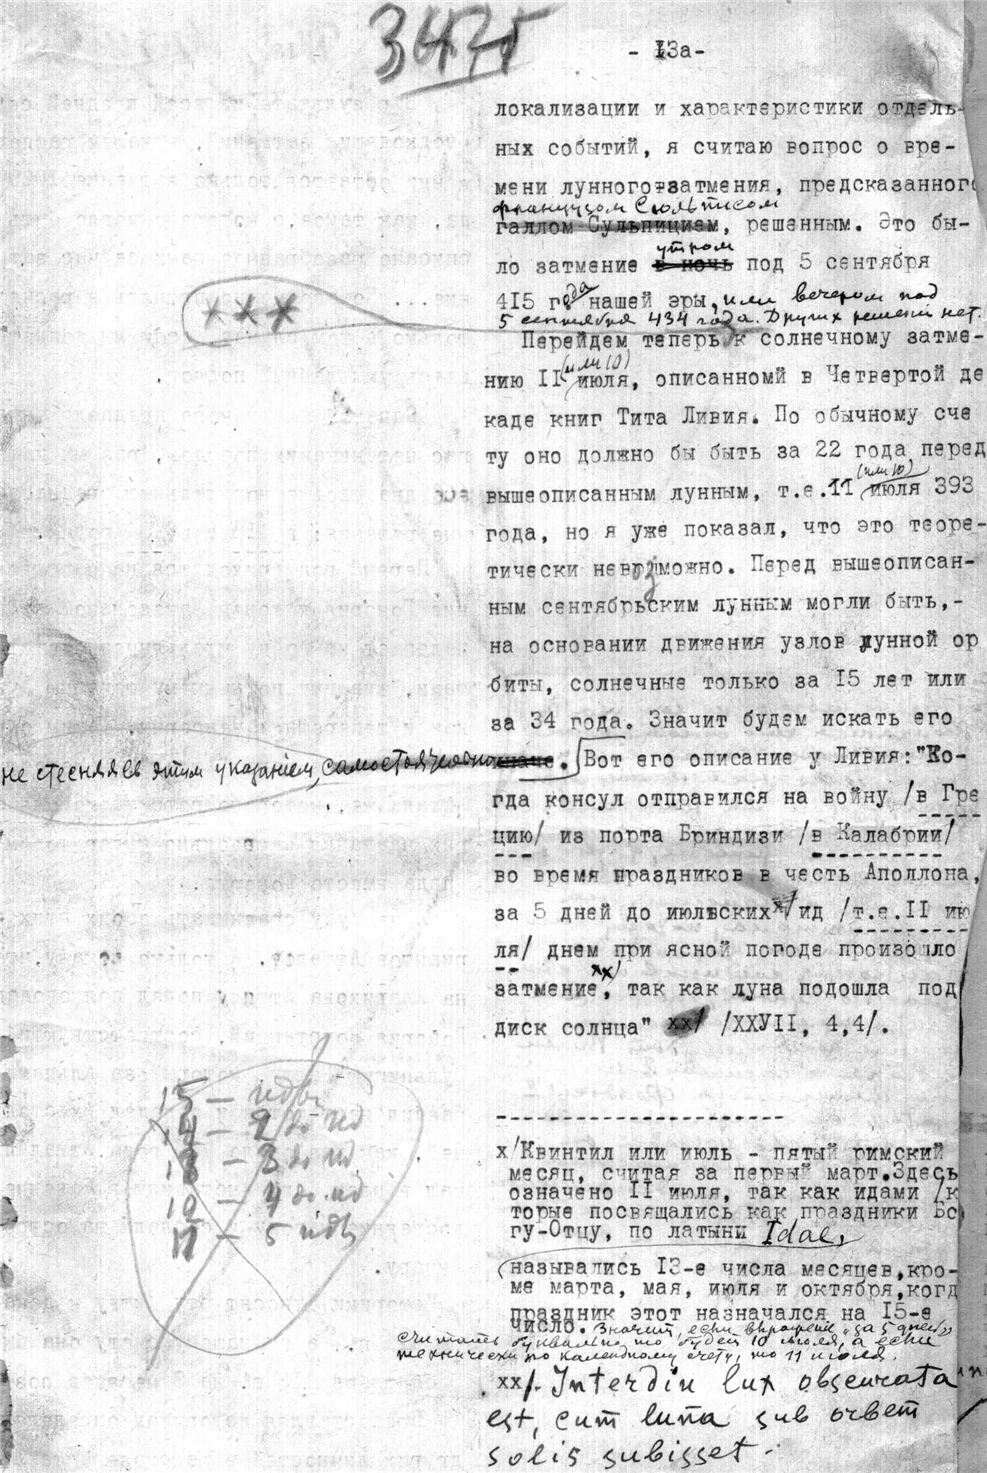 3475
- I3а-
локализации и характеристики отдель-
ных событий, я считаю вопрос о вре-
мени лунного затмения, предсказанного
французом Сюльписом
галлом Сульпицием, решенным. Это бы-
утром
ло затмение в ночь под 5 сентября
415 года нашей эры, или вечером под
5 сентября 434 года. Других решений нет.
Перейдем теперь к солнечному затме-
(или 10)
нию II июля, описанномй в Четвертой де
каде книг Тита Ливия. По обычному сче
ту оно должно бы быть за 22 года перед
(или 10)
вышеописанным лунным, т.е. 11 июля 393
года, но я уже показал, что это теоре-
тически невозможно. Перед вышеописан-
ным сентябрьским лунным могли быть,-
на основании движения узлов лунной ор
биты, солнечные только за I5 лет или
за 34 года. Значит будем искать его
не стесняясь этим указанием, самостоятельно иначе. Вот его описание у Ливия: "Ко-
гда консул отправился на войну /в Гре
цию/ из порта Бриндизи /в Калабрии/
во время праздников в честь Аполлона,
за 5 дней до июльских х/ ид /т.е. II ию
ля/ днем при ясной погоде произошло
затмение хх/, так как луна подошла под
диск солнца" хх/ /XXУII, 4,4/.
15 — иды
14 — 2 до ид
13 — 3 до ид
12 — 4 до ид
11 — 5 ид
х/Квинтил или июль - пятый римский
месяц, считая за первый март. Здесь
означено II июля, так как идами /к
торые посвящались как праздники Бо
гу-Отцу, по латыни Idae,
назывались I3-е числа месяцев, кро-
ме марта, мая, июля и октября, когд
праздник этот назначался на I5-е
число. Значит, если выражение „за 5 дней"
считать буквально, то будет 10 июля, а если
технически по календному счету, то 11 июля.
хх/. Interdiu lux obscurata
est, cum luna sub orbem
solis subisset -